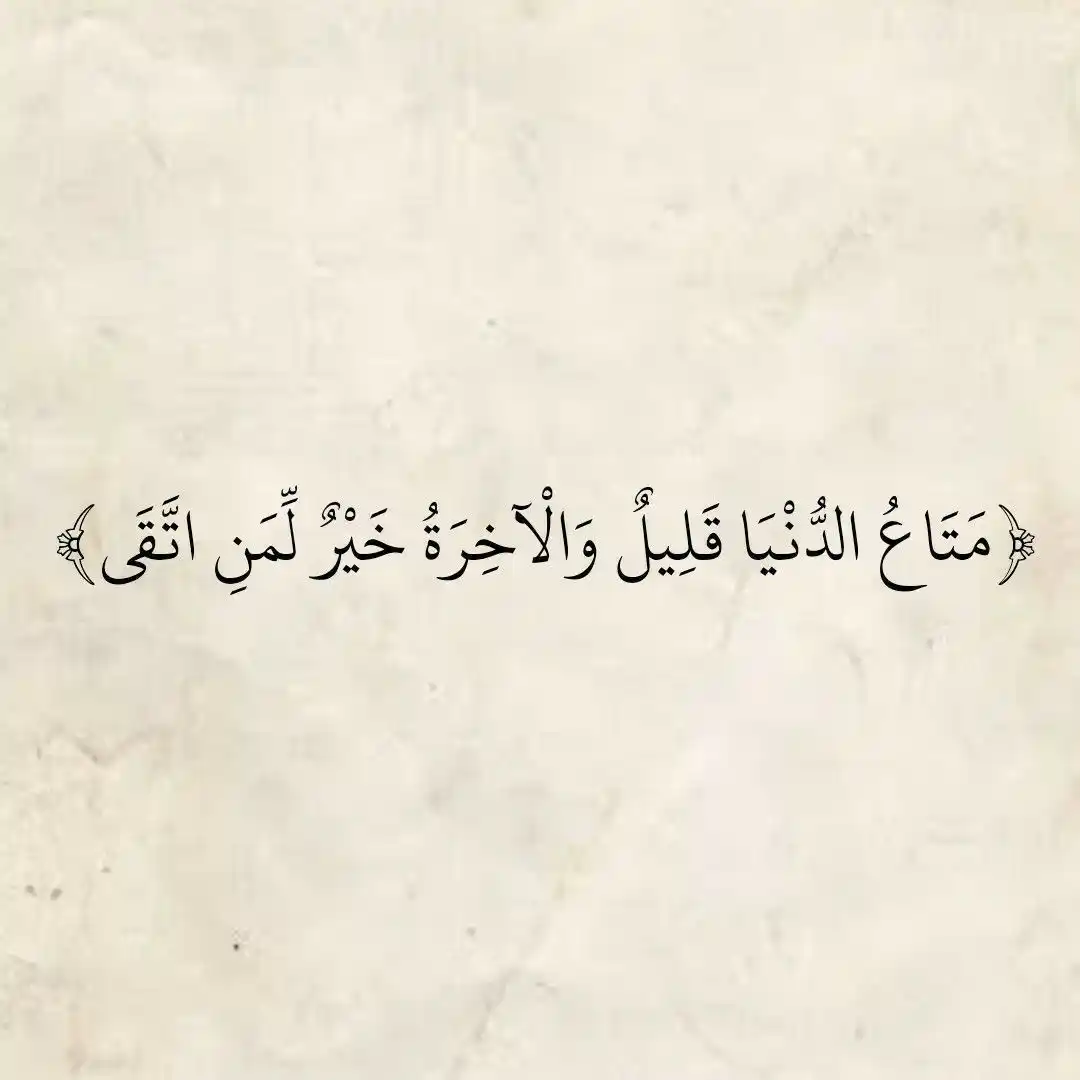 ﴿مَتَاعُ الدُّنْيَا قَلِيلٌ وَالْآخِرَةُ خَيْرٌ لِّمَنِ اتَّقَى﴾